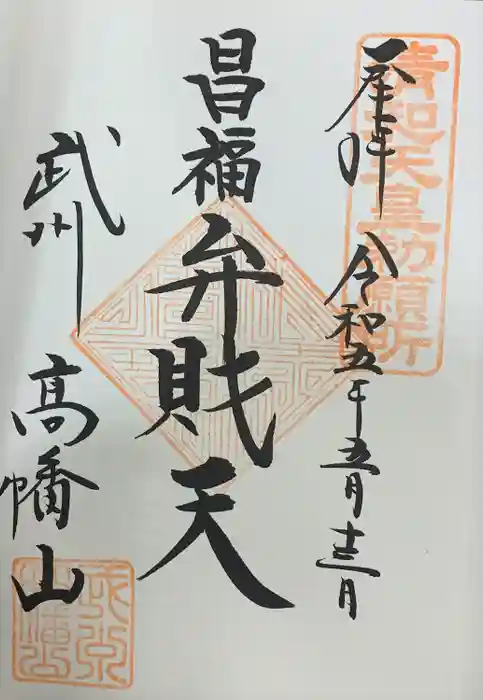 奉拝 令和五年五月十三日
清和天皇勅願所
昌福弁財天
武州 高幡山